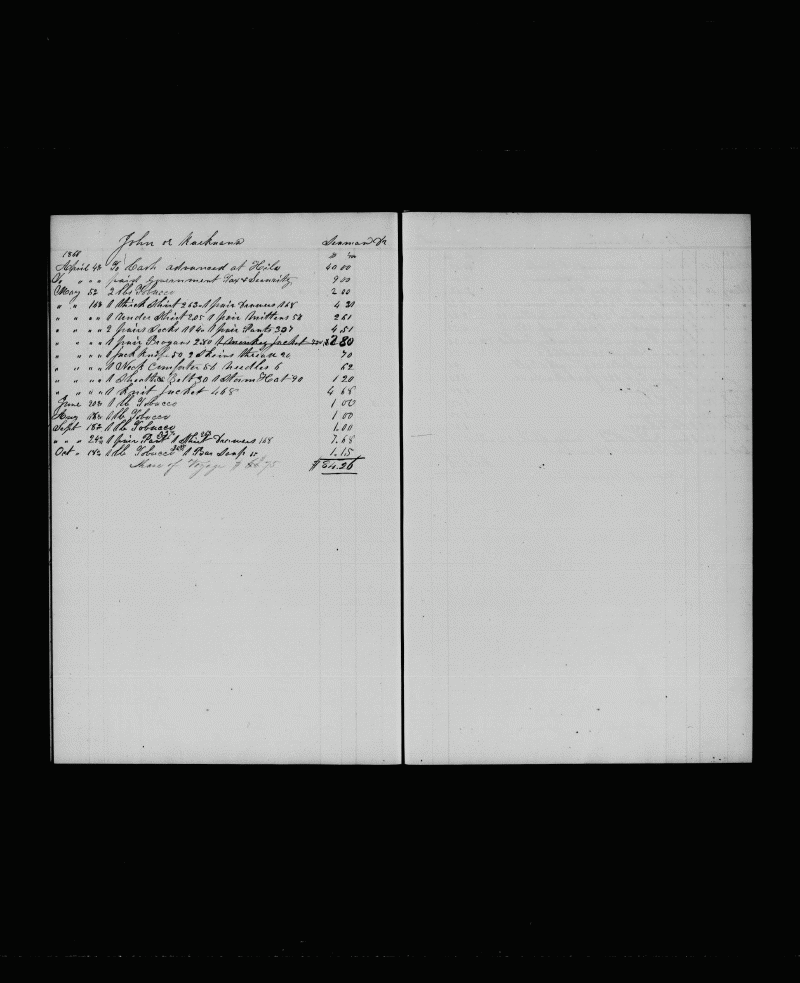 John Seaman Dr
April To Cash advanced at Hilo 40 00
Do " " " paid Government Tax & Security 9 00
May 2 lbs Tobacco 2 00
" " 1 thick Shirt 1 pair Drawers 168
" " " " 1 Under Shirt 205 1 pair Mittens 56 2 61
" " " " 2 pairs Socks 1 pair Pants 4 51
" " " " 1 pair Brogans 280 1 Monkey Jacket 2 80
" " " " 1 Jack Knife 50, 2 Skeins thread 20 70
" " " " 1 Neck Comforter 56 Needles 6 62
" " " " 1 Sheath & Belt 30 1 Storm Hat 90 1 20
" " " " 1 Jacket 468 4 68
June 1 lb Tobacco 1 00
Aug 1 lb Tobacco 1 00
Sept 1 lb Tobacco 1.00
" " " 1 pair 1 Shirt Drawers 168 7.68
Oct " 1 lb Tobacco 1 Bar Soap 15 1.15
Share of Voyage $